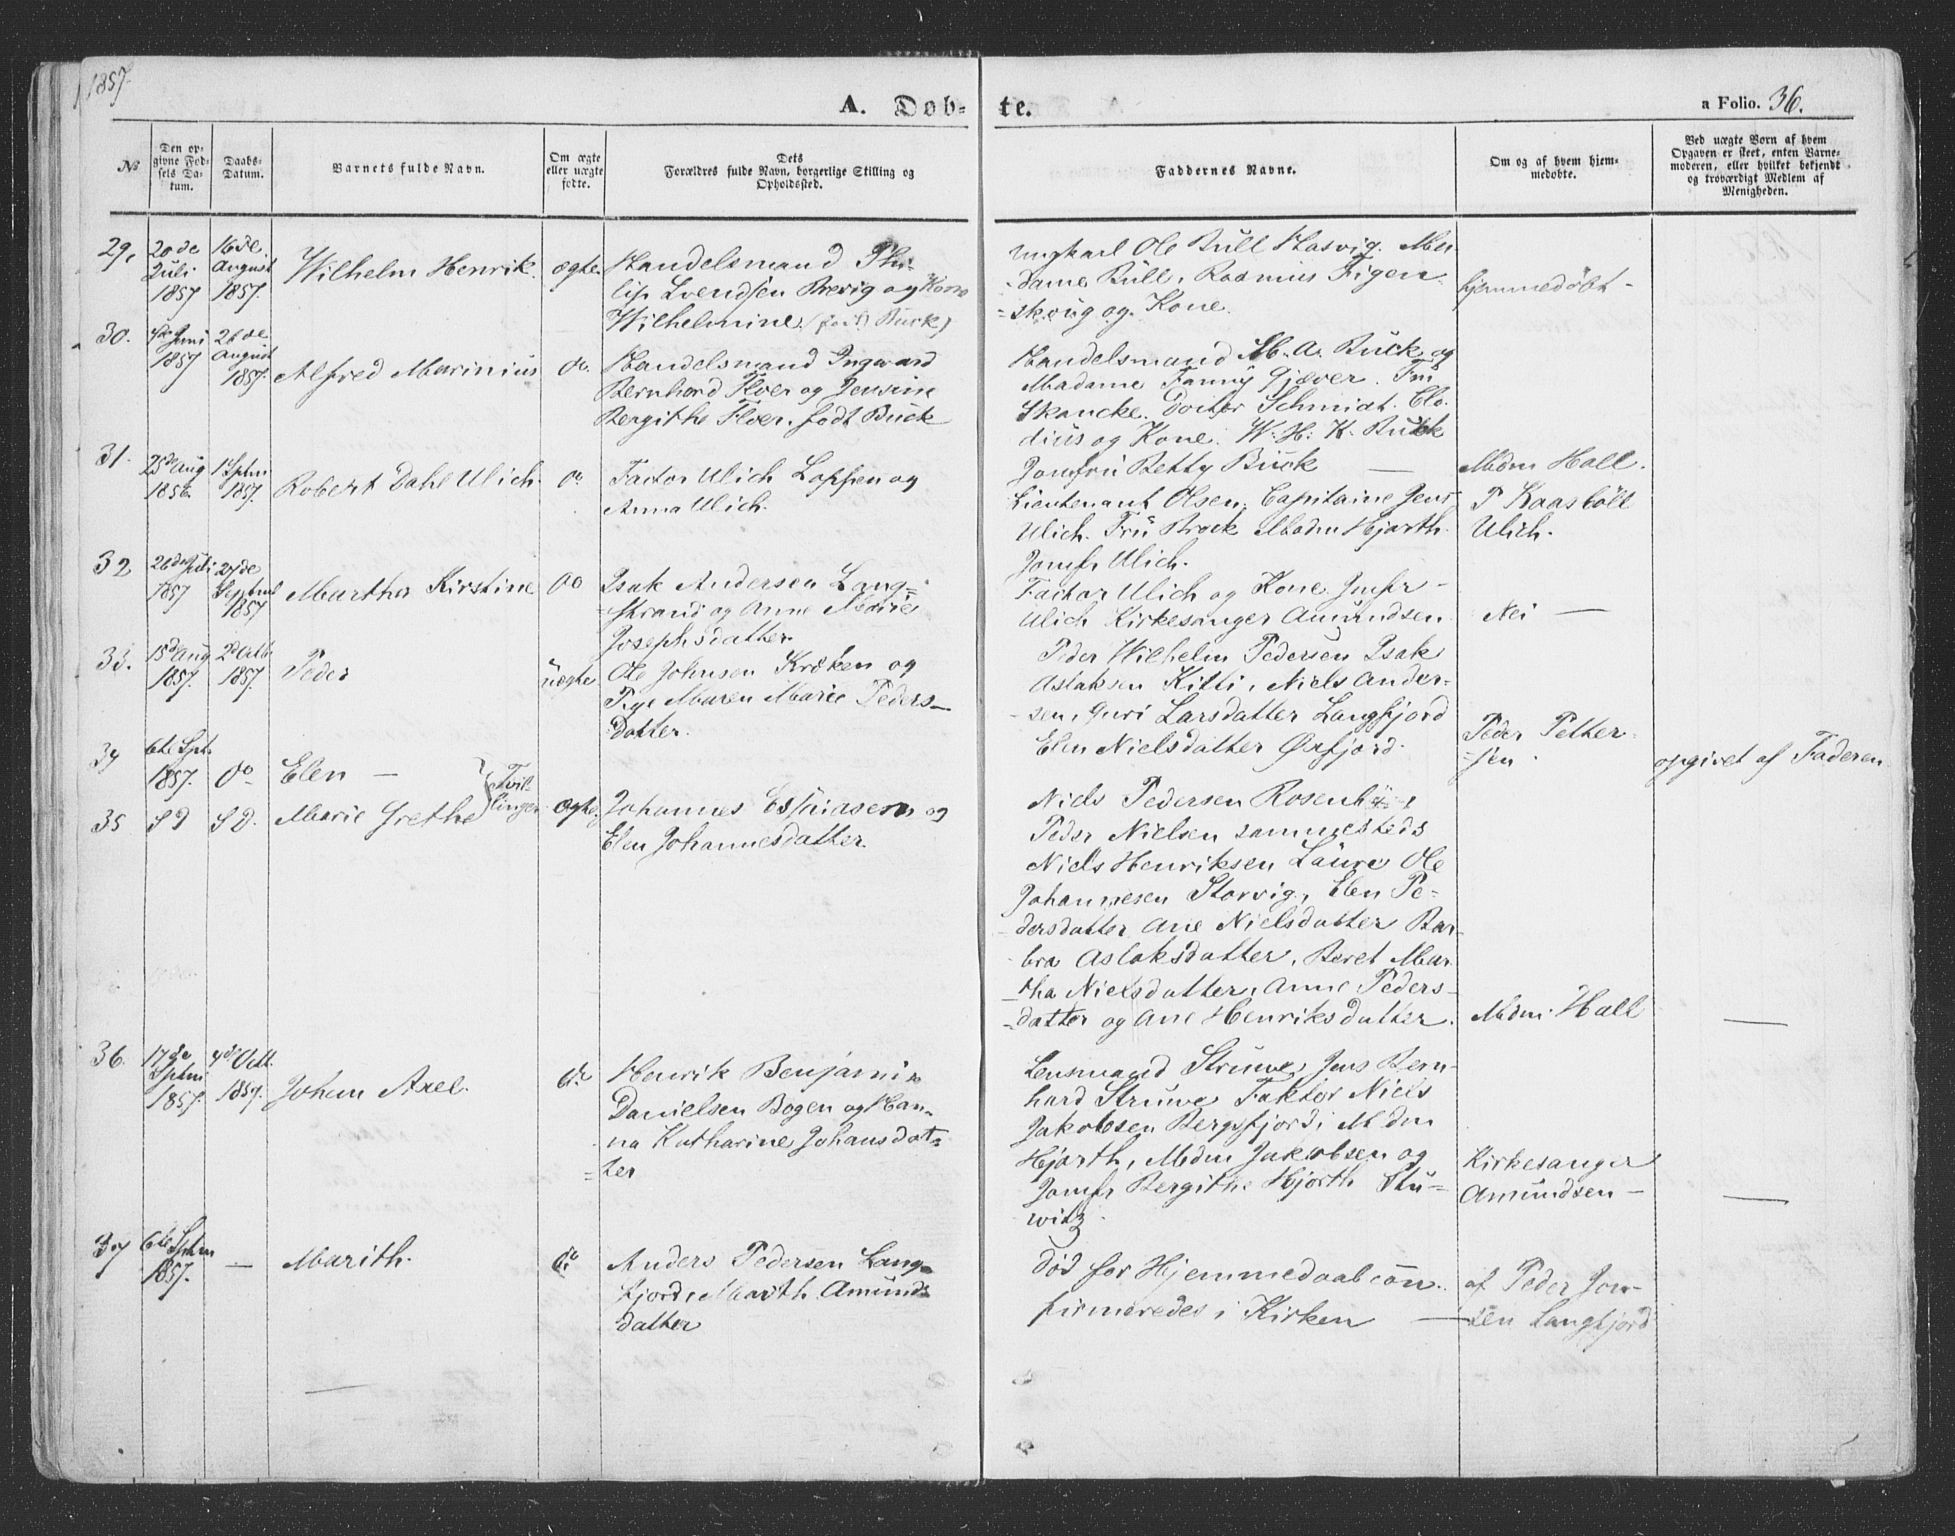 1857.
A. Döb-
te.
a Folio. 36.
No
Den op-
givne Fød-
sels Da-
tum.
Daabs-
Datum.
Barnets fulde Navn.
Om ægte
eller uægte
fødte.
Dets
Forældres fulde Navn, borgerlige Stilling og
Opholdssted.
Faddernes Navne.
Om og af hvem hjem-
medøbte.
Ved uægte Børn af hvem
Opgaven er skeet, enten Barne-
moderen, eller hvilket bekjendt
og troværdigt Medlem af
Menigheden.
29,
20de
Juli
1857
16de
August
1857.
Wilhelm Henrik.
ægte
Handelsmand Phi-
lip Svendsen Brevig og Kone
Wilhelmine (født Buck)
Ungkarl Ole Bull Hasvig. Ma-
dame Bull, Rasmus Figen-
=skoug og Kone.
hjemmedøbt -
30.
Juni
1857
26de
August
1857.
Alfred Marinius
do.
Handelsmand Ingward
Bernhard Floer og Jensine
Bergithe Floer. født Buck
Handelsmand M. A. Buck og
Madame Fanny Gjæver. Fru
Skancke. Doctor Schmidt. Clo-
dius og Kone. W: H: K. Buck
Jomfru Betty Buck —
31.
25de Aug
1856.
1 Sptm
1857.
Robert Dahl Ulich.
do
Factor Ulich Loppen og
Anna Ulich.
Lieutenant Olsen, Capitaine Jens
Ulich. Fru Brock Madm Hjorth.
Jomfr Ulich.
Mdm Hall.
P Kaasbøll
Ulich.
32
26de Juli
1857
27de
Septemb
1857
Marthe Kirstine
do
Isak Andersen Lang=
=strand og Anne Marie
Josephsdatter.
Factor Ulich og Kone Jmfr -
Ulich Kirkesanger Amundsen.
Nei —
33.
15d Aug
1857.
2d Octb
1857.
Peder
uægte
Ole Johnsen Kroken og
Pige Maren Marie Peders-
Datter.
Peder Wilhelm Pedersen Isak
Aslaksen Kitti, Niels Ander-
-sen, Guri Larsdatter Langfjord
Elen Nielsdatter Øxfjord.
Peder Pether-
sen.
opgivet af Faderen
34
6te Spt.
1857.
do
Elen —
Tvil-
linger
35
S D
S D.
Marie Grethe
ægte,
Johannes Esaiasen og
Elen Johannesdatter.
Niels Pedersen
Peder Nielsen sammesteds
Niels Henriksen Laure Ole
Johannesen Storvig, Elen Pe-
dersdatter Ane Nielsdatter Bar-
bra Aslaksdatter, Beret Mar-
tha Nielsdatter, Anne Peders-
=datter og Ane Henriksdatter.
Mdm. Hall
36.
17de
Sptm
1857.
4de Oct.
1857.
Johan Axel.
do
Henrik Benjamin
Danielsen Bogen og Han-
na Katharine Johansdat=
=ter
Lensmand Struwe, Jens Bern-
hard Struwe Faktor Niels
Jakobsen Bergsfjord, Mdm
Hjorth, Mdm Jakobsen og
Jomfr Bergithe Hjorth Stu=
witz.
Kirkesanger
Amundsen -
37
6te Sptm
1857.
—
Marith.
do
Anders Pedersen Lang-
fjord, Marth Amunds
datter
død før Hjemmedaab con-
firmeredes i Kirken —
af Peder Jon-
sen Langfjord